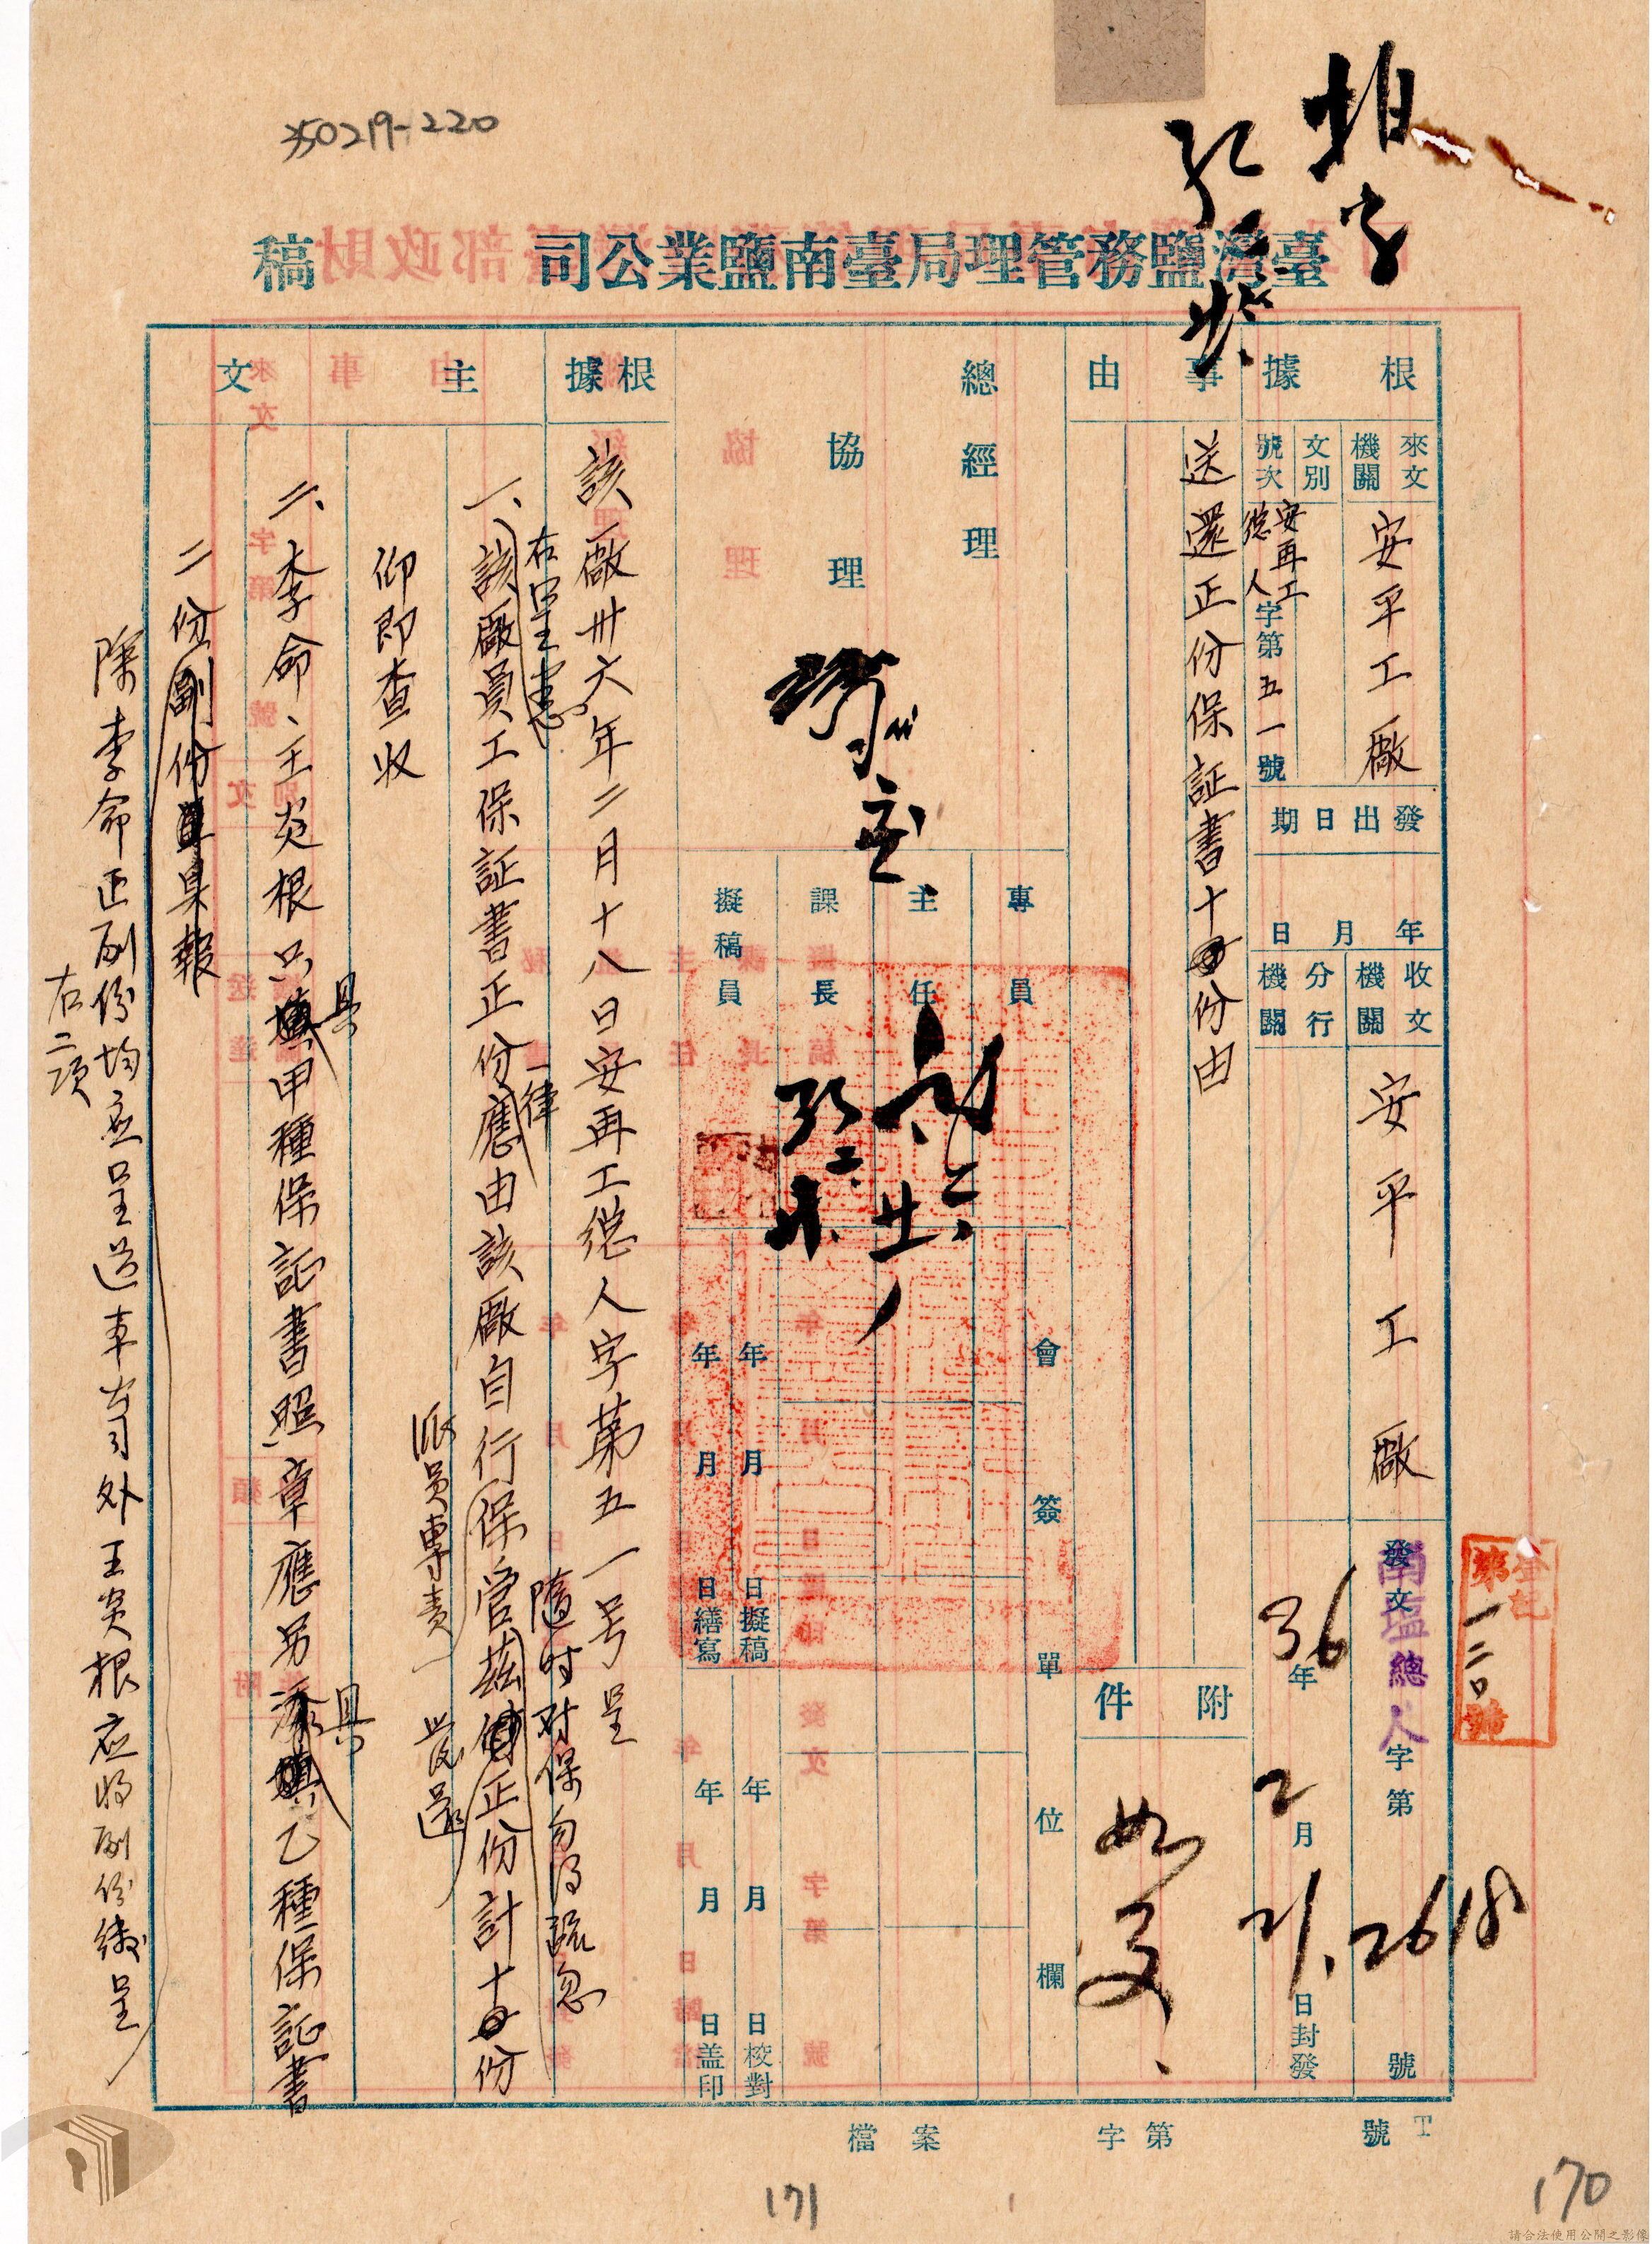 350219-220
臺灣鹽務管理局臺南鹽業公司 稿
根據
來文機關
安平工廠
文別
號次
安再工總人字第五一號
發出日期
年月日
收文機關
安平工廠
分行機關
發文
南鹽總人字第2618號
36年2月21日封發
登記第一二〇號
事由
送還正份保証書十份由
附件
如文
總經理
協理
專員
主任
課長
擬稿員
會簽單位欄
年月日擬稿
年月日繕寫
年月日校對
年月日盖印
根據
該廠卅六年二月十八日安再工總人字第五一号呈
主文
右呈悉
一、該廠員工保証書正份應由該廠自行保管茲正份計十份
一律
隨时对保勿得疏忽
派員專責
發還
仰即查收
二、李命、王炎根只填甲種保証書照章應另添填乙種保証書
具
具
二份副份具報
除李命正副份均应呈送本公司外王炎根应将副份繳呈
右二項
檔案 字第 號
171
170
請合法使用公開之影像